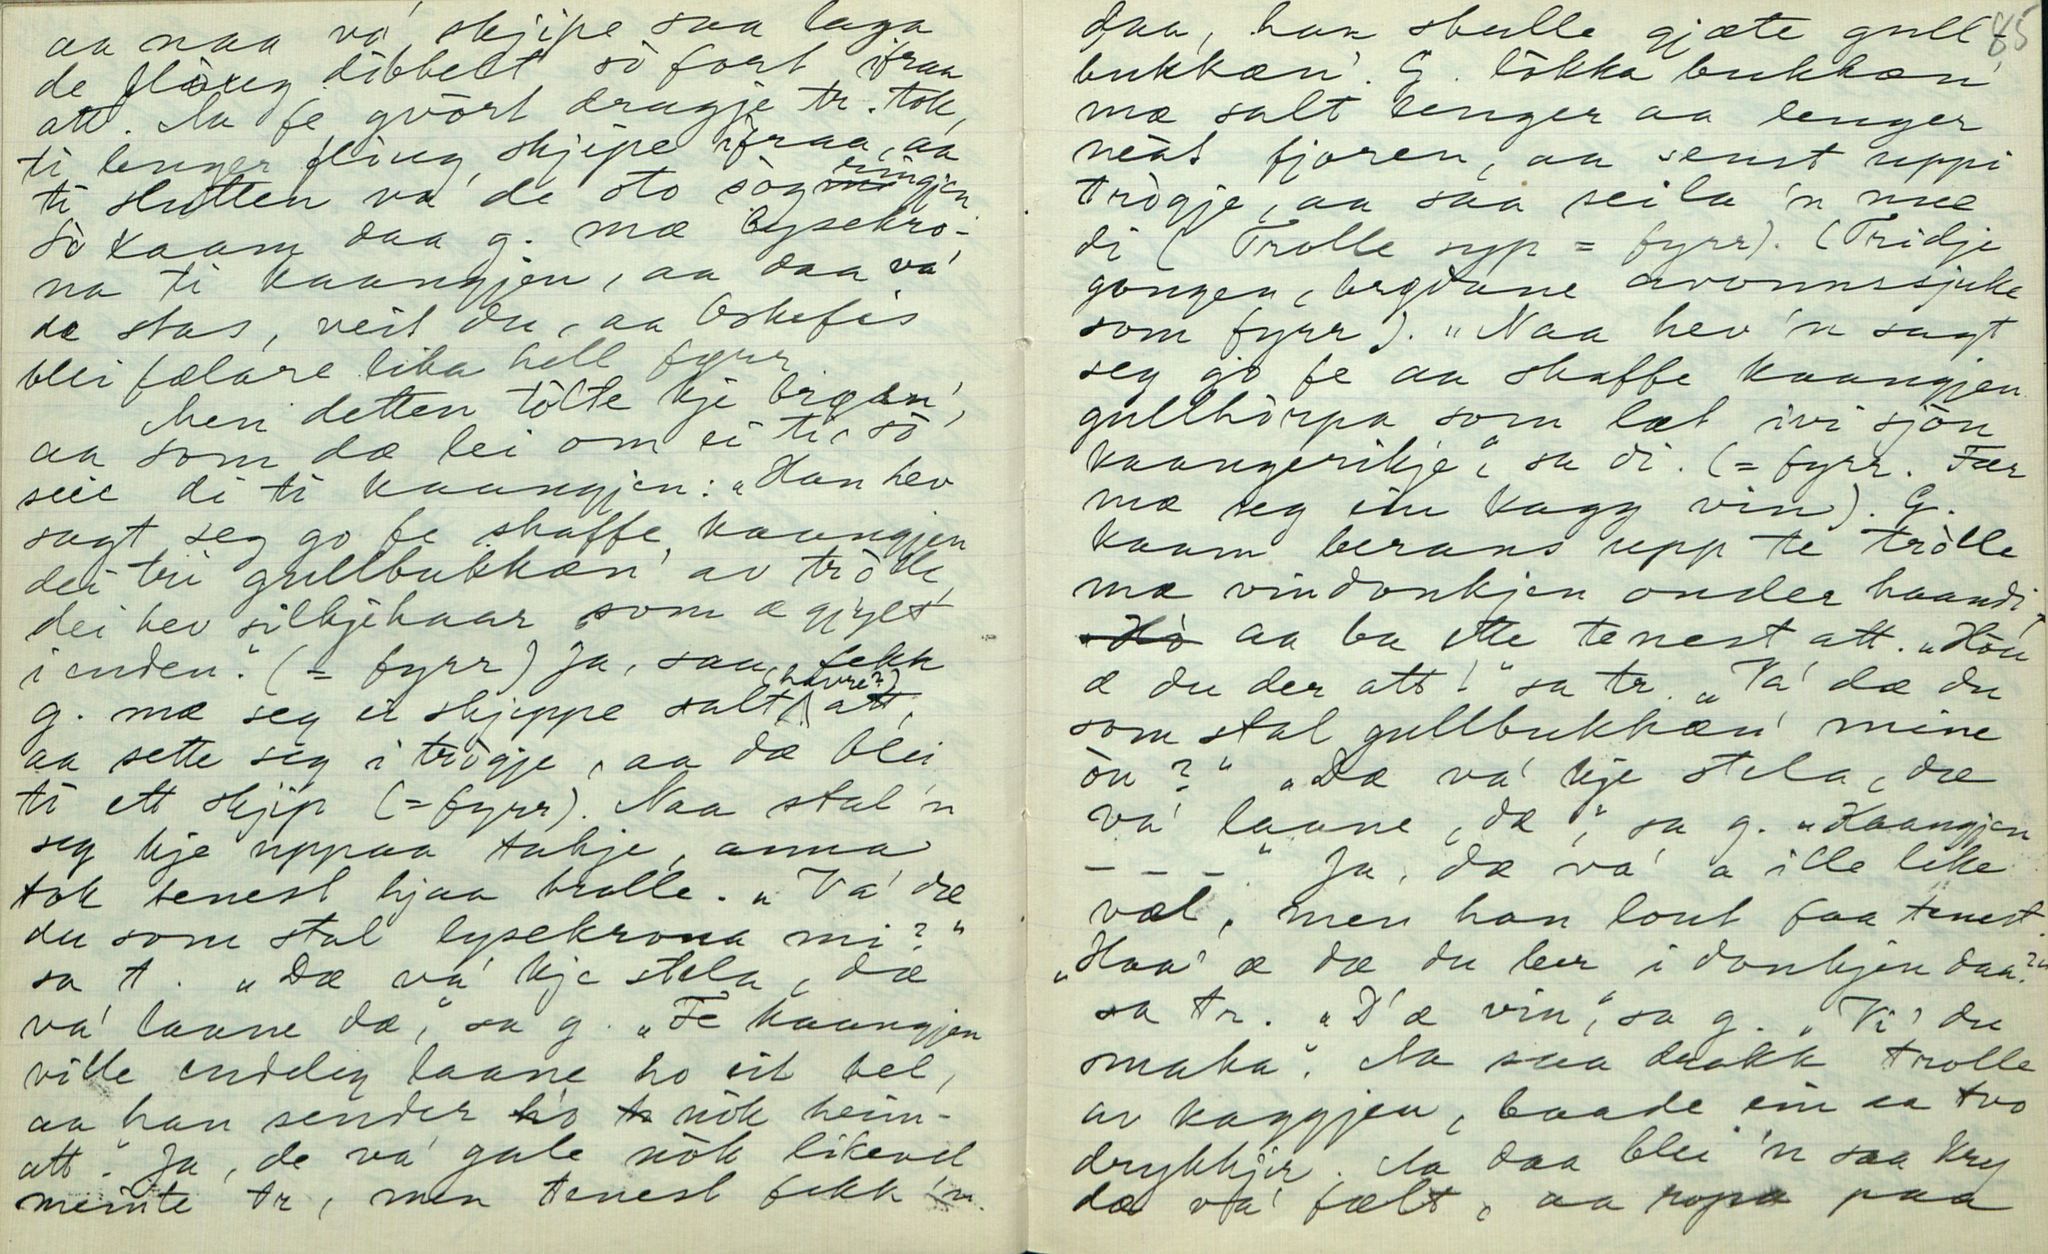 aa naa va' skjipe saa laga
de fløug dibbelt so fort ifraa
att. Aa fe gvort dragje tr. tok,
ti lenger fløug skjipe ifraa, aa
ti slutten va' de sto sog eingjen
So kaam daa g. mæ lysekro-
na ti kaangjen, aa daa va'
de stas, veit du, aa Oskefis
blei fælare lika hell fyrr
Men detten tòlte kje brøan',
aa som dæ lei om ei ti, so
seie di ti kaangjen: „Han hev
sagt seg go fe skaffe kaangjen
dei tri gullbukkæn' av trolle
dei hev silkjehaar som æ gjylt
i enden." (= fyrr) Ja, saa fekk
g. mæ seg ei skjeppe salt (havre?) att,
aa sette seg i trògje, aa dæ blei
ti ett skjip (= fyrr). Naa stal 'n
seg kje uppaa takje, anna
tok tenest hjaa trolle. „Va' dæ
du som stal lysekrona mi?"
sa t. „Dæ va' kje stela, dæ
va' laane dæ," sa g. „Fe kaangjen
ville endeleg laane ho eit bel,
aa han sender ho nòk heim-
att." Ja, de va' gale nòk likevel
meinte tr, men tenest fekk 'n
85
daa, han skulle gjæte gull-
bukkæn'. G. lòkka bukkæn'
mæ salt lenger aa lenger
neàt fjoren, aa senst uppi
trògje, aa saa seila 'n mæ
di (Trolle syp = fyrr). (Tridje
gongen, brødane avonnssjuke
som fyrr). „Naa hev 'n sagt
seg go fe aa skaffe kaangjen
gullhòrpa som læt ivi sjòu
kaangerikje", sa di. (= fyrr. Fær
mæ seg ein kagg vin). G.
kaam berans upp te trolle
mæ vindonkjen onder haandi,
aa ba ette tenest att. „Hòu
æ du der att!" sa tr. „Va' dæ du
som stal gullbukkæn' mine
òu?" „Dæ va' kje stela, dæ
va' laane, dæ", sa g. „Kaangjen
– – –" Ja, dæ va' a ille like
væl, men han lout faa tenest.
„Haa' æ dæ du ber i donkjen daa?"
sa tr. „D'æ vin", sa g. „Vi' du
smaka". Aa saa drakk trolle
av kaggjen, baade ein aa tvo
drykkjir. Aa daa blei 'n saa kry
dæ va' fælt, aa ropa paa